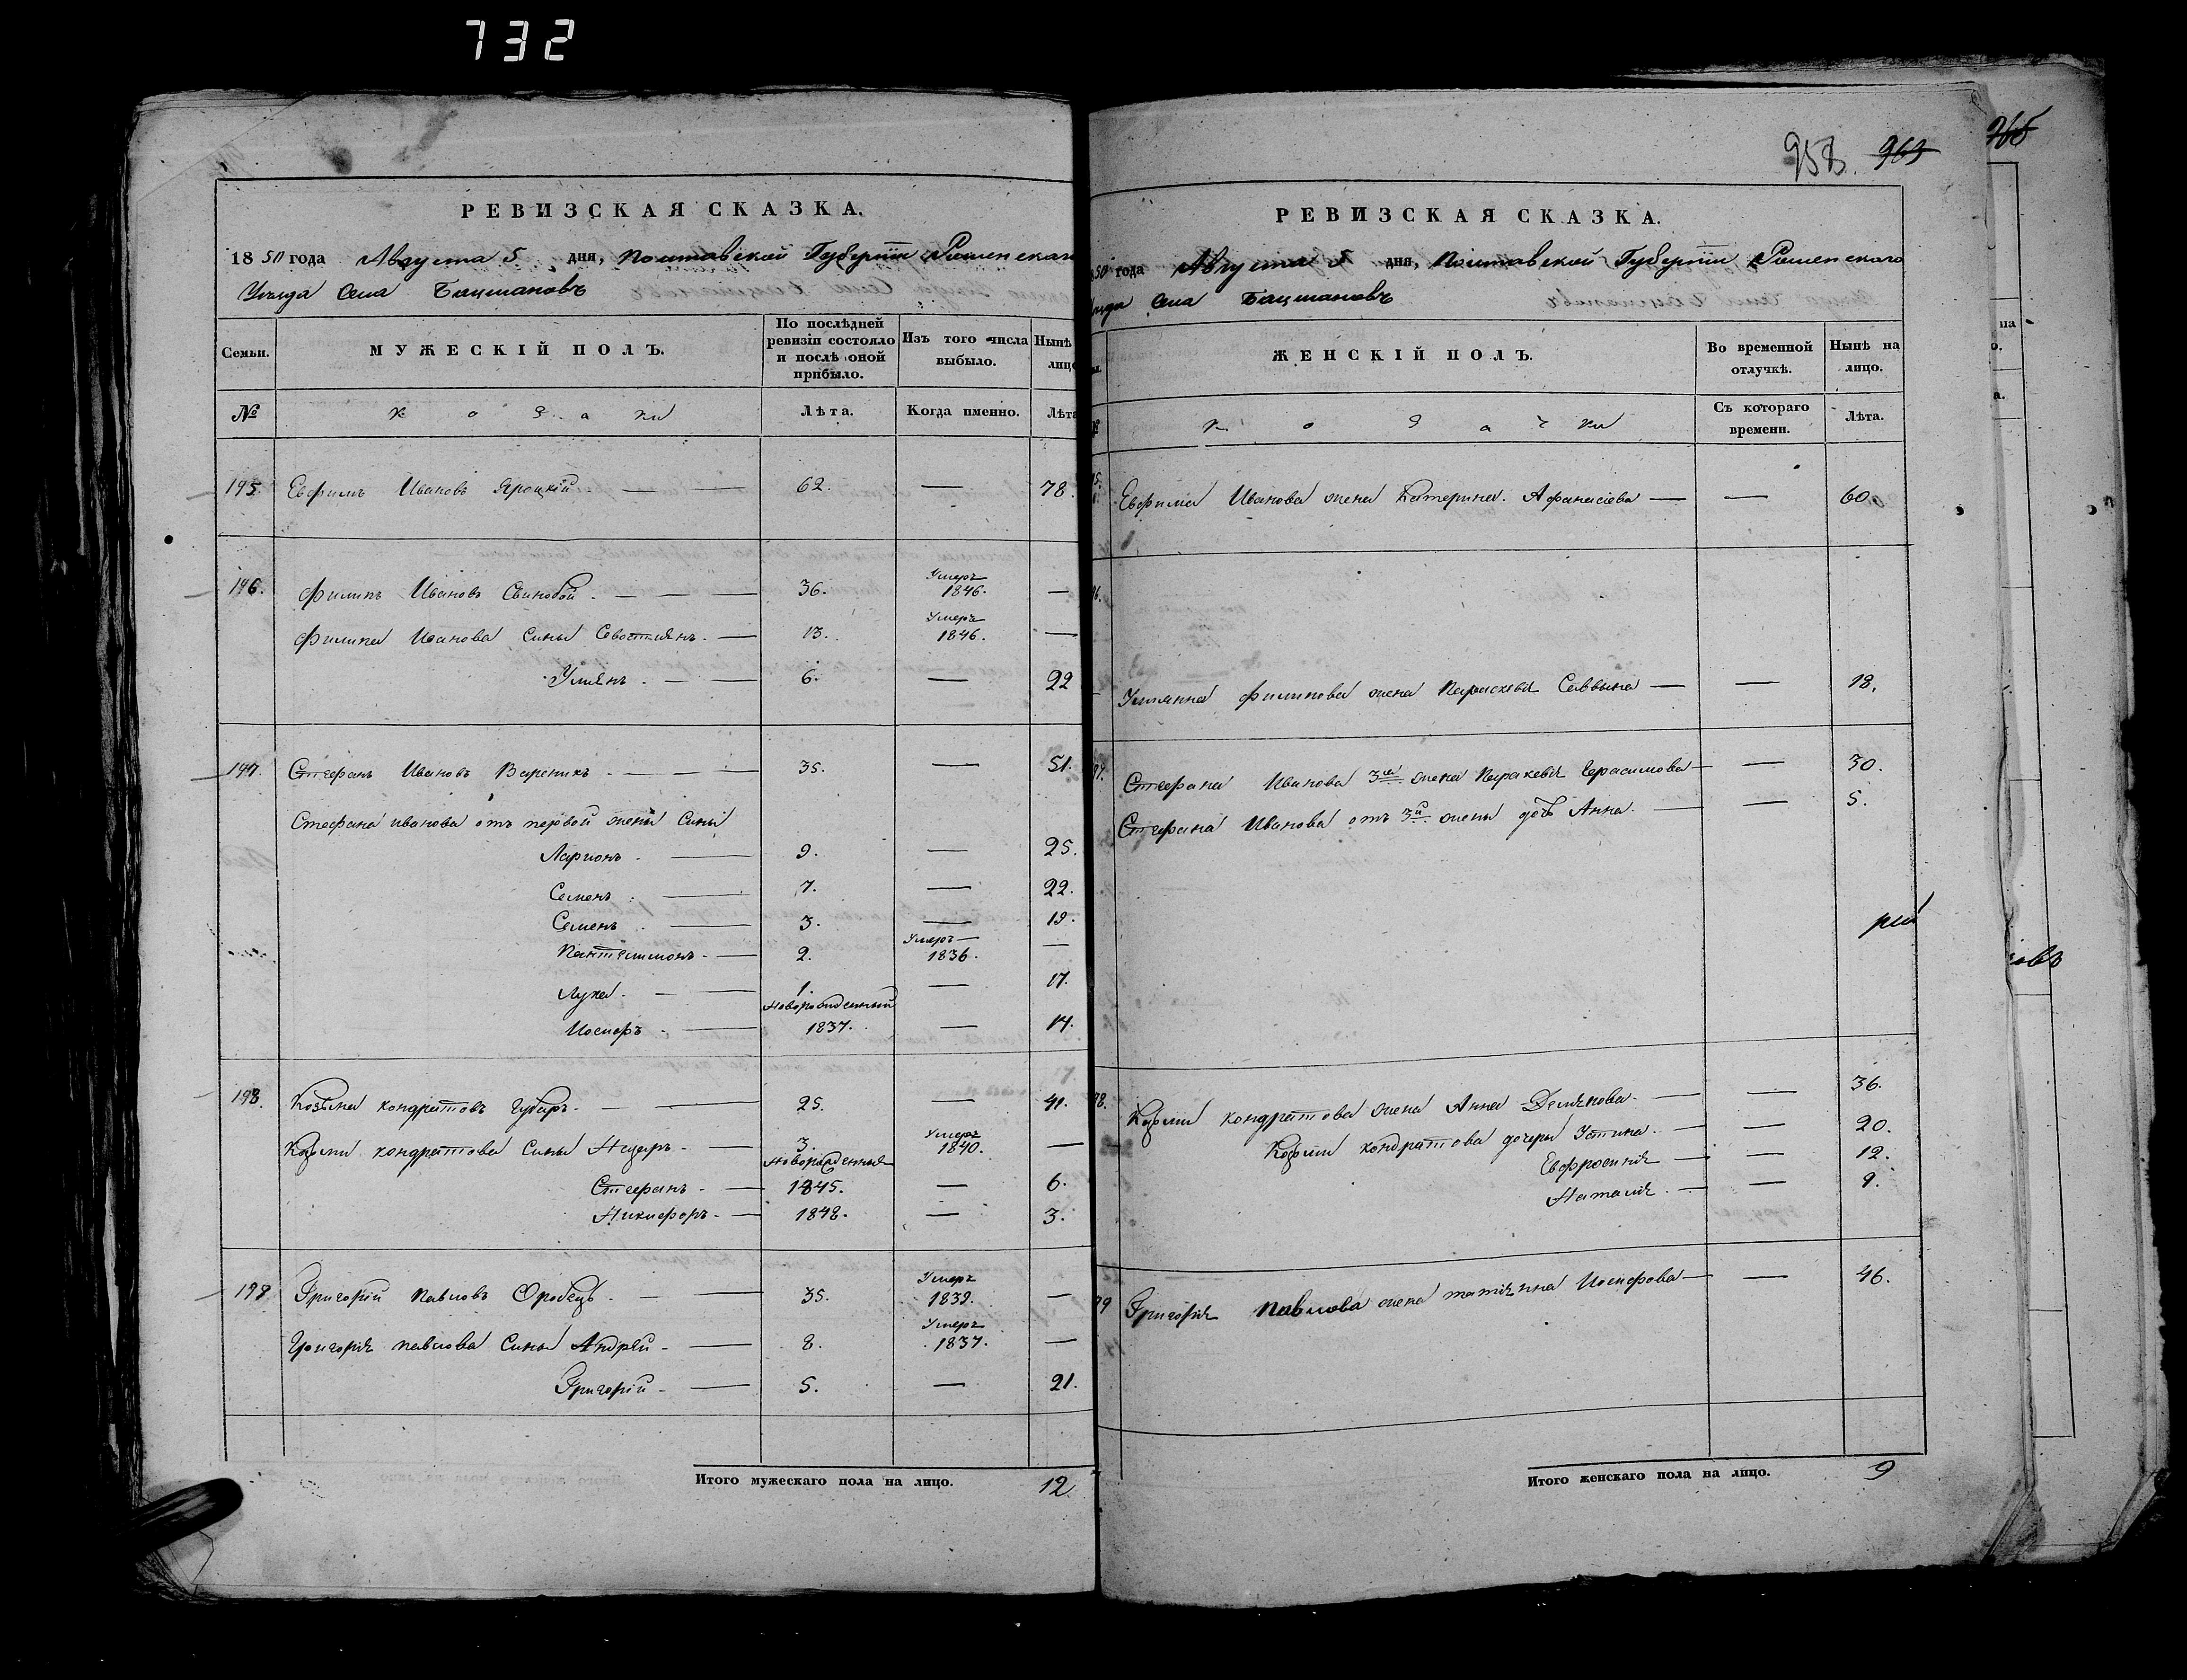 732
РЕВИЗСКАЯ СКАЗКА.
1850 года Августа 5 дня, Полтавской Губерніи Роменскаго
Уѣзда Села Бацмановъ
Семьи. МУЖЕСКІЙ ПОЛЪ. По послѣдней ревизіи состояло и послѣ оной прибыло. Изъ того числа выбыло. Нынѣ лицо
№ козаки Лѣта. Когда именно. Лѣта
195. Евфимъ Ивановъ Яроцкій. — — 62. — 78.
196. Филипъ Ивановъ Свинобой. — — — 36. Умеръ 1846. —
Филипа Иванова Сины Севостіянъ. — 13. Умеръ 1846. —
Уліянъ. — — 6. — 22
197. Стефанъ Ивановъ Вареникъ. — — — 35. — 51.
Стефана Иванова отъ первой жены Сины
Ларионъ. — 9. — 25.
Семенъ. — 7. — 22.
Семенъ. — 3. — 19.
Пантелимонъ. — 2. Умеръ — 1836. —
Лука. — — 1. — 17.
Иосифъ. — Новорожденный 1837. — 14.
198. Козьма Кондратовъ Губарь. — — 25. — 41.
Козьми Кондратова Сины Назаръ. — 3. Умеръ 1840. —
Новорожденныя
Стефанъ. — 1845. — 6.
Никифоръ. — 1848. — 3.
199 Григорій Павловъ Оробецъ. — — 35. Умеръ 1839. —
Григорія Павлова Сины Андрей. — 8. Умеръ 1837. —
Григорій. — 5. — 21.
Итого мужескаго пола на лицо. 12.
958. 963
РЕВИЗСКАЯ СКАЗКА.
50 года Августа 5 дня, Полтавской Губерніи Роменскаго
Села Бацмановъ
ЖЕНСКІЙ ПОЛЪ. Во временной отлучкѣ. Нынѣ на лицо.
козачки Съ котораго времени. Лѣта.
Евфима Иванова жена Катерина Афанасіева — — 60
Улияна Филипова жена Параскевія Саввына — — 18.
Стефана Иванова 3я жена Паракевія Герасимова — — 30.
Стефана Иванова отъ 3й жены дочь Анна. — — 5.
Козьми Кондратова жена Анна Демянова. — — 36.
Козьми Кондратова дочеры Устина. — — 20.
Евфросинія — — 12.
Наталія. — — 9.
Григорія Павлова жена татіянна Иосифова — — 46.
Итого женскаго пола на лицо. 9